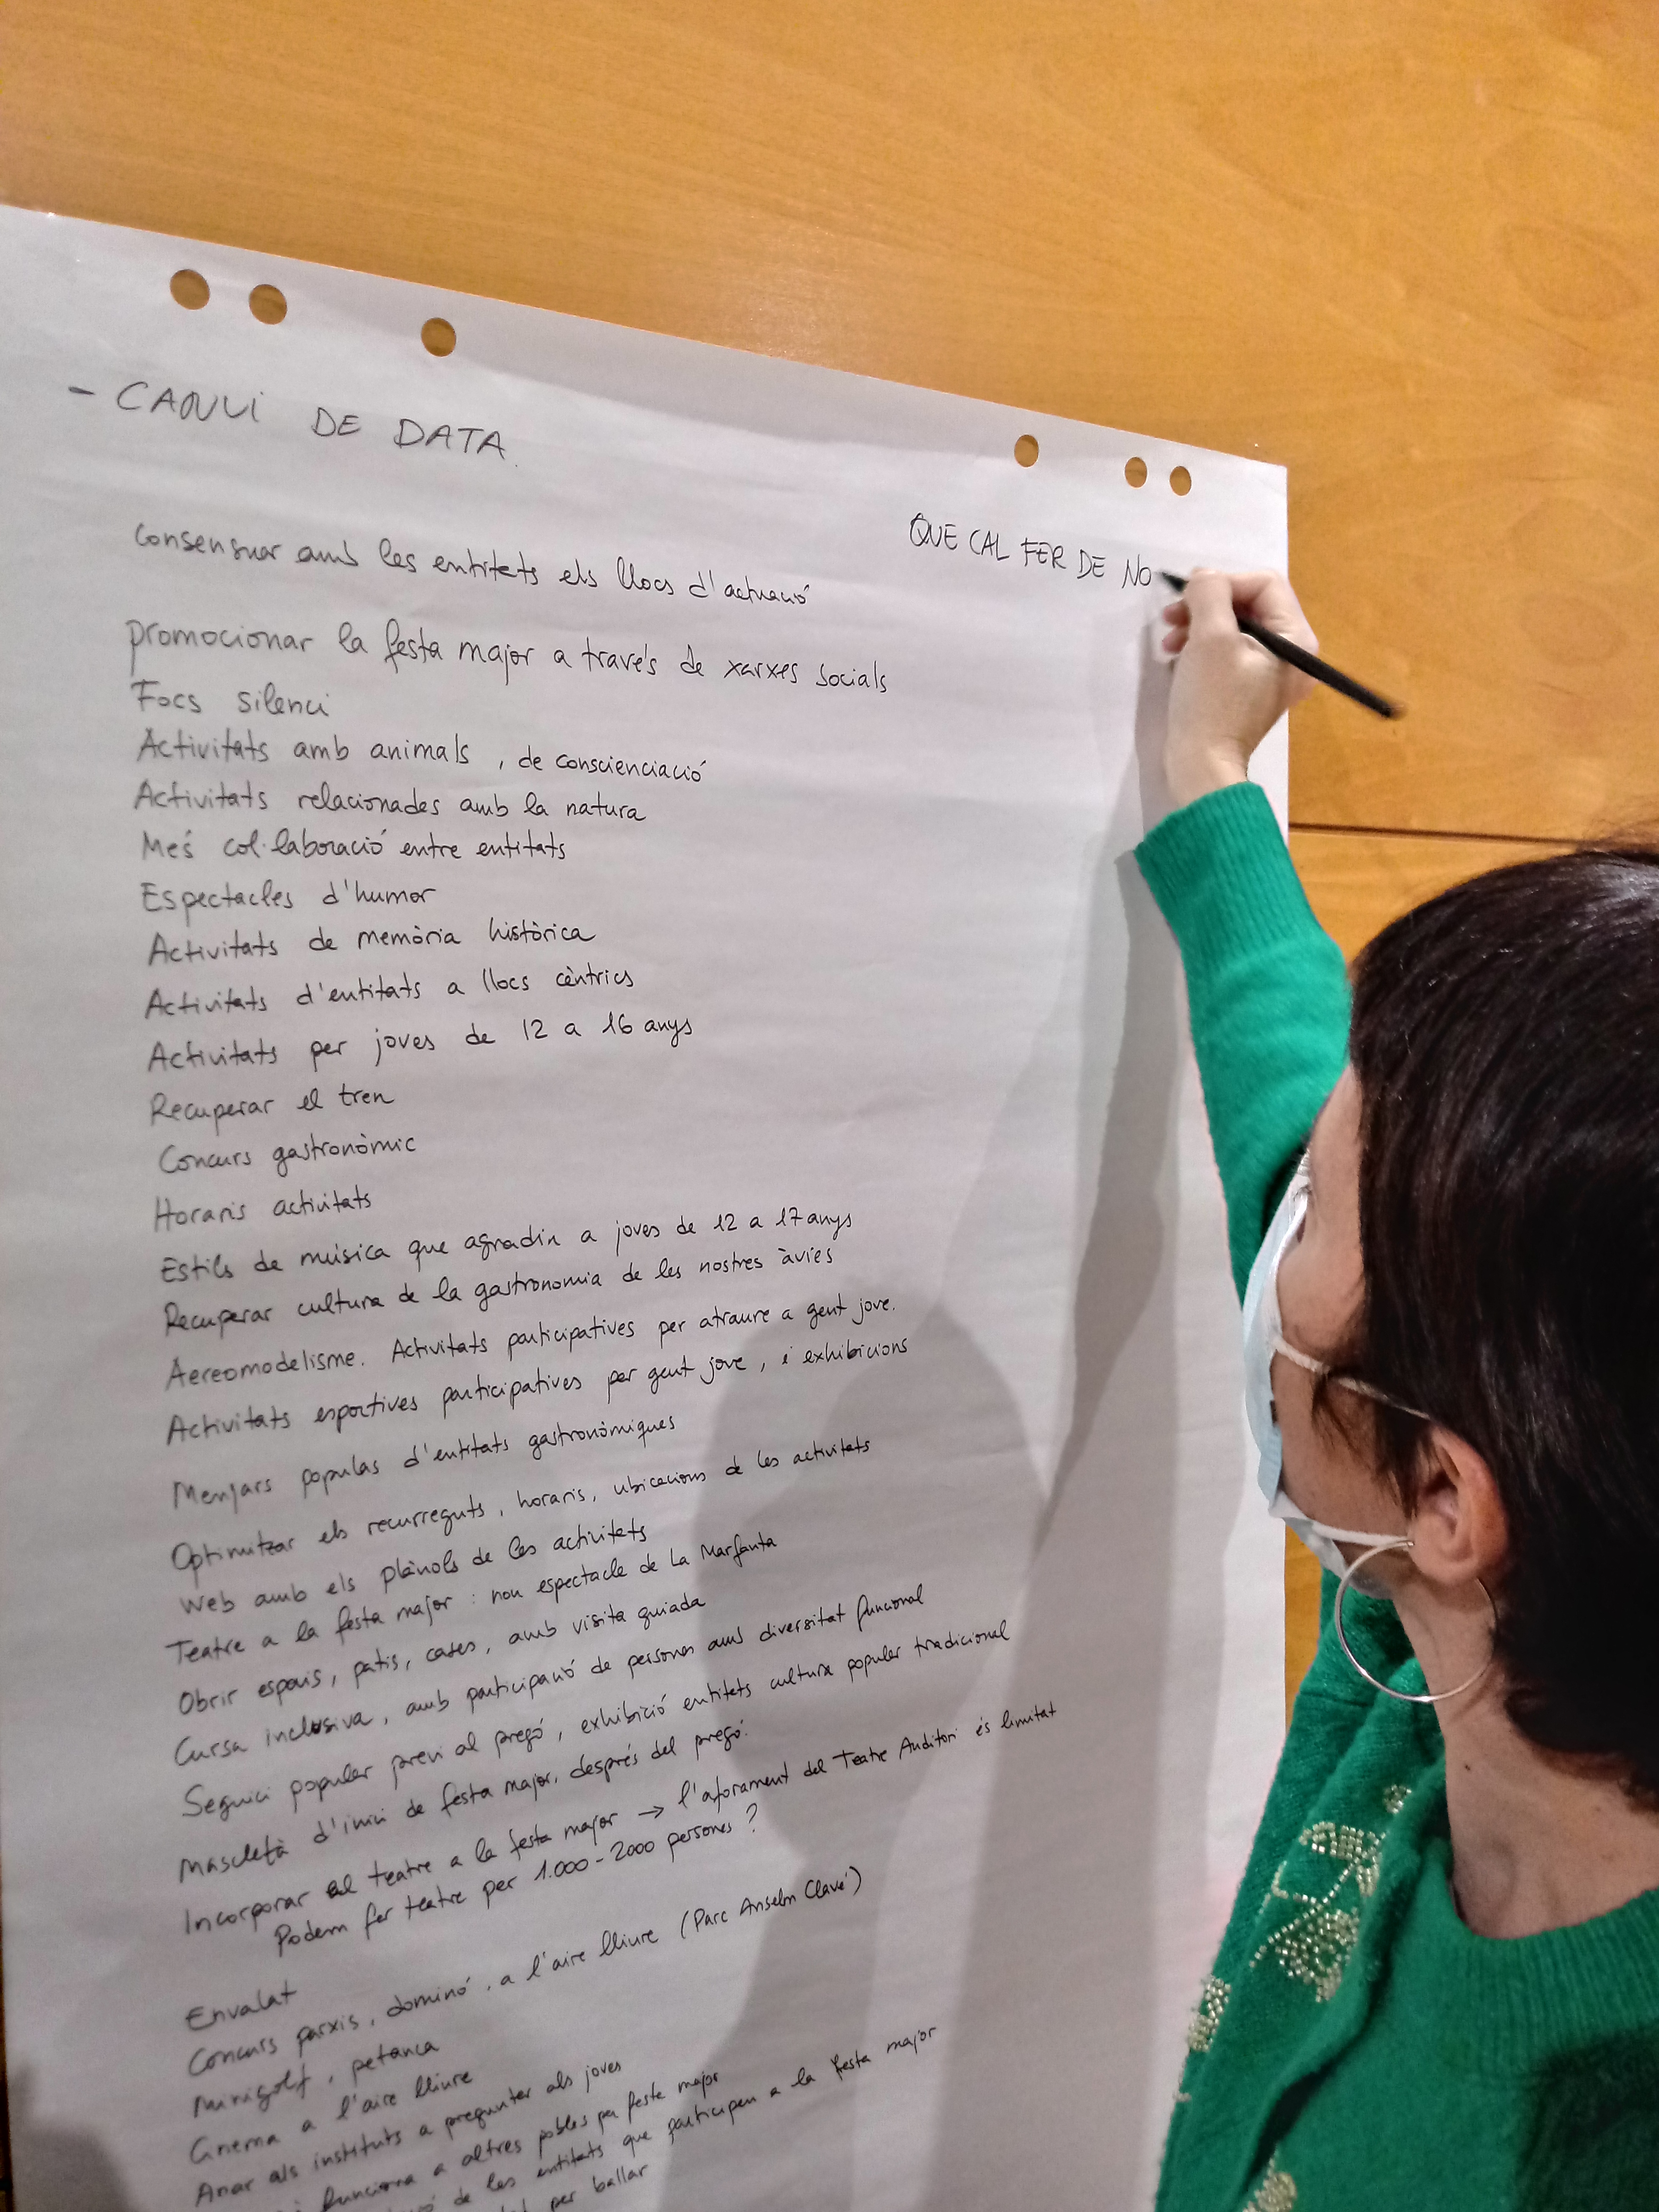 - CANVI DE DATA.
QUE CAL FER DE NO
Consensuar amb les entitats els llocs d'actuació
promocionar la festa major a través de xarxes socials
Focs silenci
Activitats amb animals, de conscienciació
Activitats relacionades amb la natura
Més col·laboració entre entitats
Espectacles d'humor
Activitats de memòria històrica
Activitats d'entitats a llocs cèntrics
Activitats per joves de 12 a 16 anys
Recuperar el tren
Concurs gastronòmic
Horaris activitats
Estils de música que agradin a joves de 12 a 17 anys
Recuperar cultura de la gastronomia de les nostres àvies
Aereomodelisme. Activitats participatives per atraure a gent jove.
Activitats esportives participatives per gent jove, i exhibicions
Menjars populas d'entitats gastronòmiques
Optimitzar els recurreguts, horaris, ubicacions de les activitats
Web amb els plànols de les activitats
Teatre a la festa major: nou espectacle de La Marfanta
Obrir espais, patis, cases, amb visita guiada
Cursa inclusiva, amb participació de persones amb diversitat funcional
Seguici popular previ al pregó, exhibició entitats cultura popular tradicional
Mascletà d'inici de festa major, després del pregó.
Incorporar al teatre a la festa major → l'aforament del Teatre Auditori és limitat
Podem fer teatre per 1.000-2000 persones?
Envalat
Concurs parxís, dominó, a l'aire lliure (Parc Anselm Clavé)
Minigolf, petanca
Cinema a l'aire lliure
Anar als instituts a preguntar als joves
funciona a altres pobles per festa major
de les entitats que participen a la festa major
per ballar